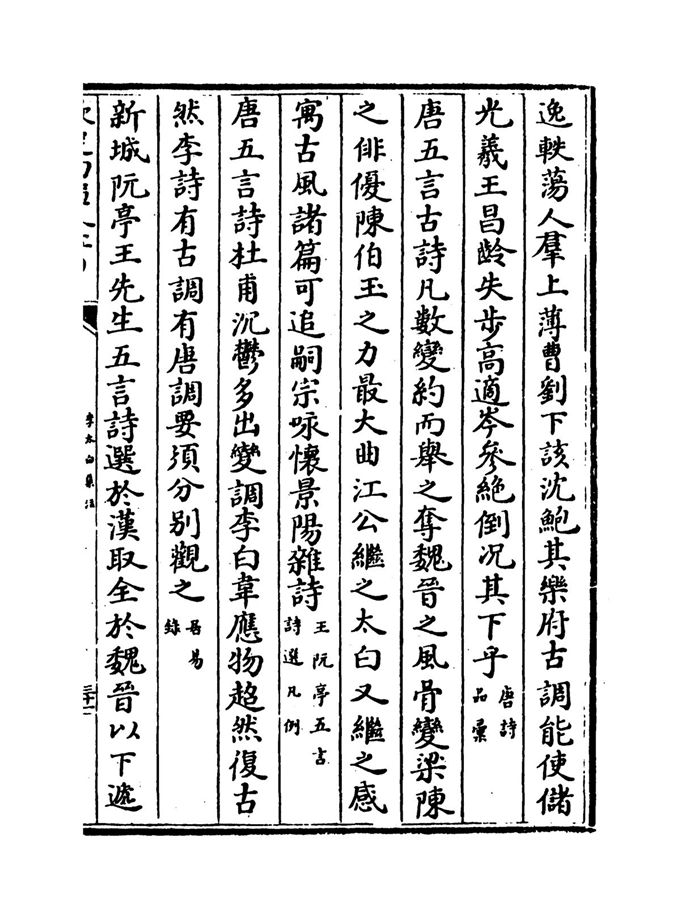 逸軼蕩人羣上薄曹劉下該沈鮑其樂府古調能使儲
光羲王昌齡失步高適岑參絶倒况其下乎唐詩品彚
唐五言古詩凡數變約而舉之奪魏晉之風骨變梁陳
之俳優陳伯玉之力最大曲江公繼之太白又繼之感
寓古風諸篇可追嗣宗咏懷景陽雜詩王阮亭五言詩選凡例
唐五言詩杜甫沉鬱多出變調李白韋應物超然復古
然李詩有古調有唐調要須分别觀之居易錄
新城阮亭王先生五言詩選於漢取全於魏晉以下遞
李太白集注